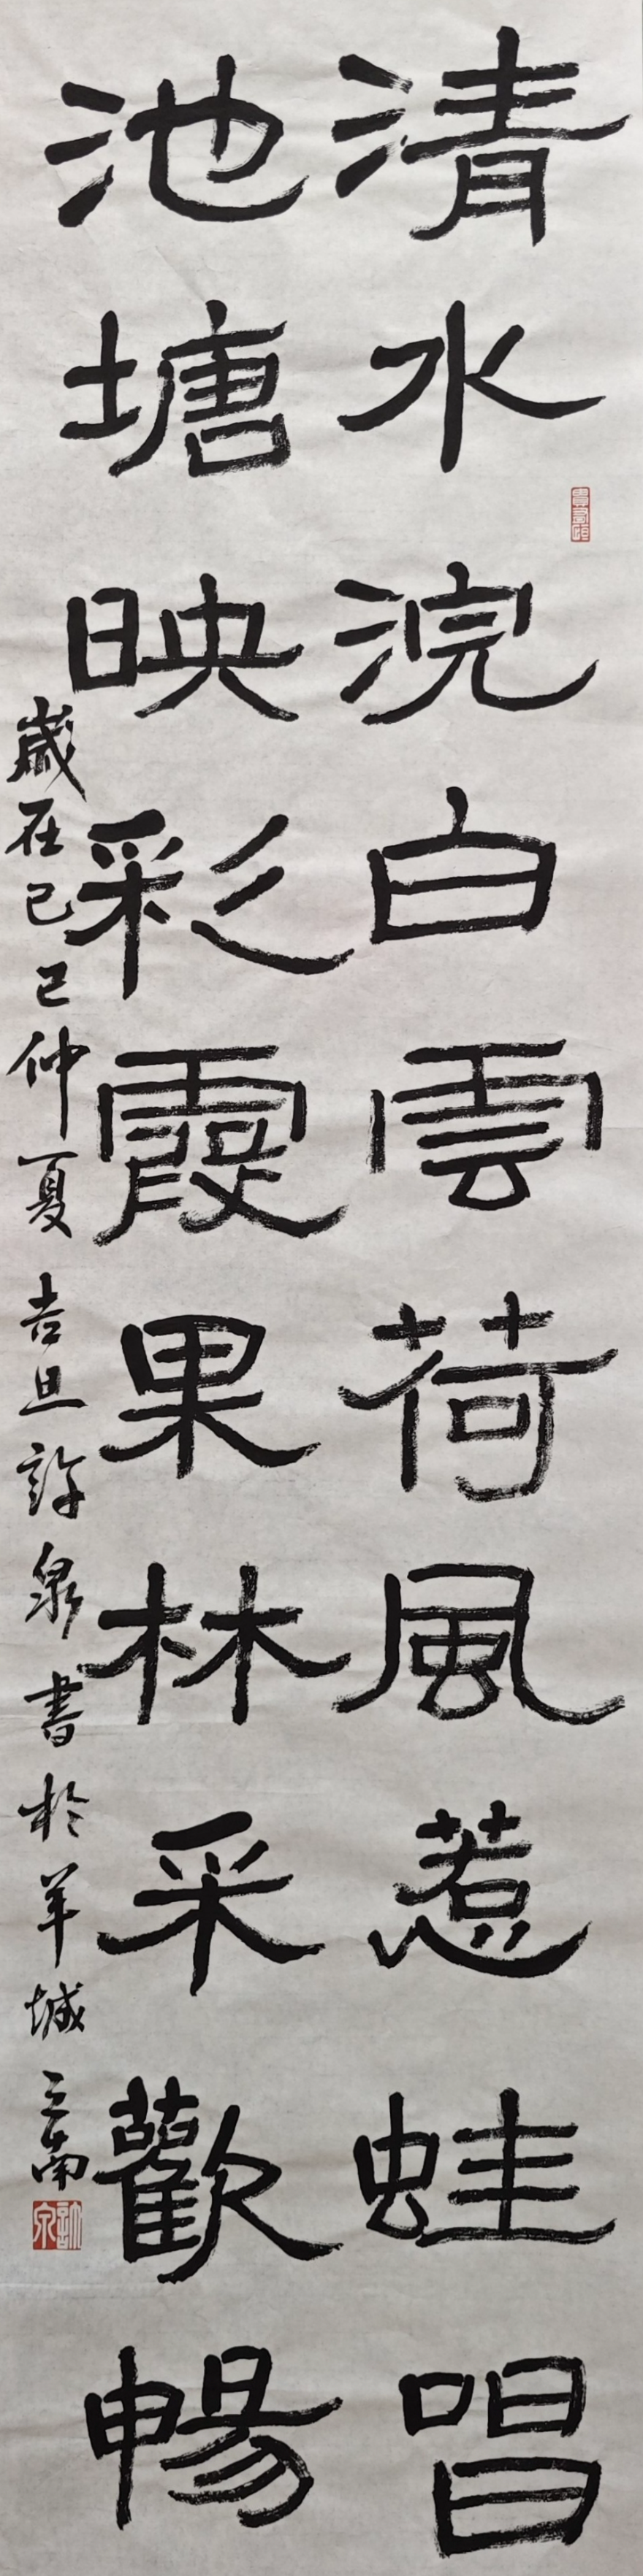 清水浣白雲荷風惹蛙唱
池塘映彩霞果林采歡暢
歲在己巳仲夏吉旦許泉書於羊城之南
許泉